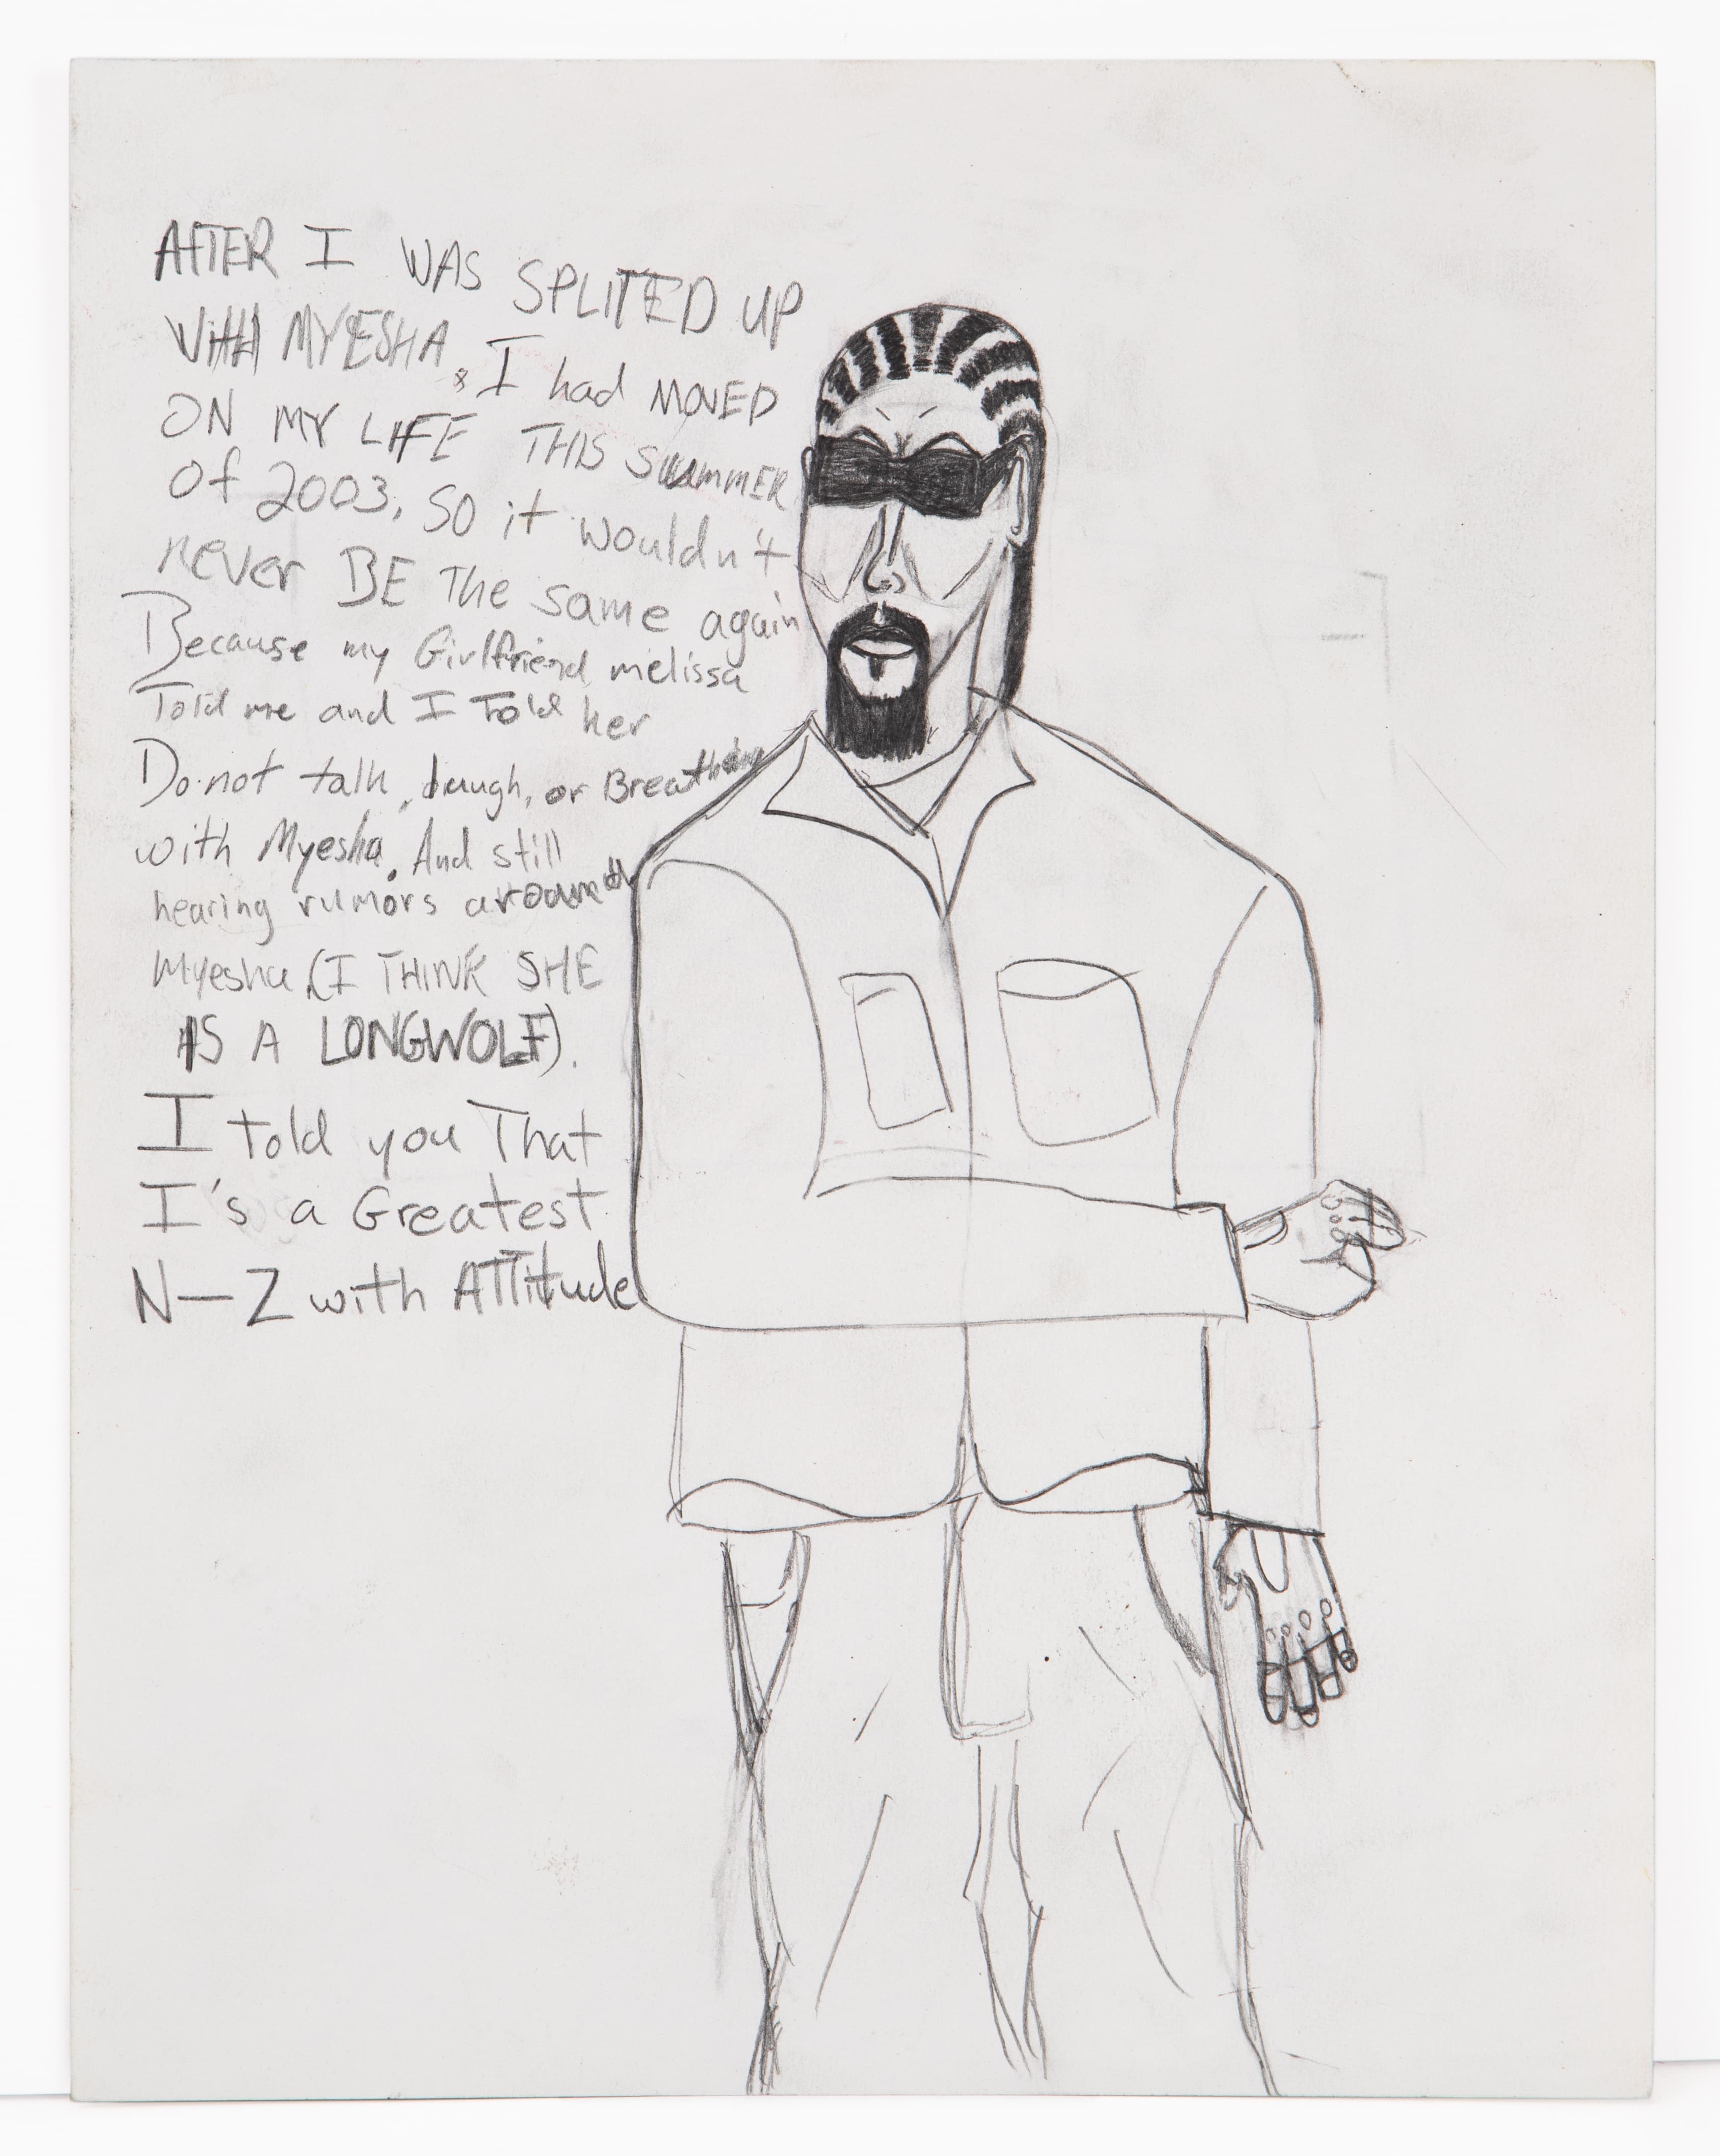 AFTER I WAS SPLITED UP
WITH MYESHA. I had MOVED
ON MY LIFE THIS SUMMER
Of 2003, SO it wouldn't
never BE The same again
Because my Girlfriend melissa
Told me and I Told her
Do not talk, laugh, or Breathing
with Myesha. And still
hearing rumors around
Myesha (I THINK SHE
IS A LONGWOLF).
I told you That
I's a Greatest
N-Z with Attitude